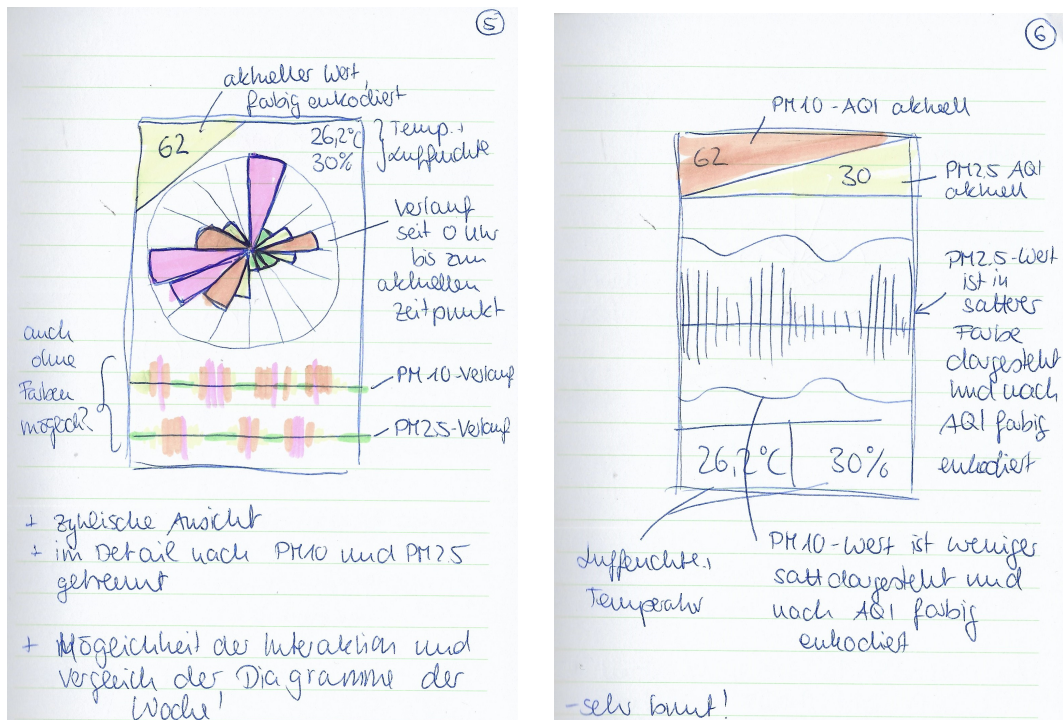 5
aktueller Wert,
farbig enkodiert
62
26,2°C
30%
Temp. +
Luftfeuchte
Verlauf
seit 0 Uhr
bis zum
aktuellen
Zeitpunkt
auch
ohne
Farben
möglich?
PM10-Verlauf
PM2.5-Verlauf
+ zyklische Ansicht
+ im Detail nach PM10 und PM2.5
getrennt
+ Möglichkeit der Interaktion und
Vergleich der Diagramme der
Woche!
6
PM10-AQI aktuell
62
30
PM2.5 AQI
aktuell
PM2.5-Wert
ist in
satterer
Farbe
dargestellt
und nach
AQI farbig
enkodiert
26,2°C
30%
Luftfeuchte,
Temperatur
PM10-Wert ist weniger
satt dargestellt und
nach AQI farbig
enkodiert
- sehr bunt!